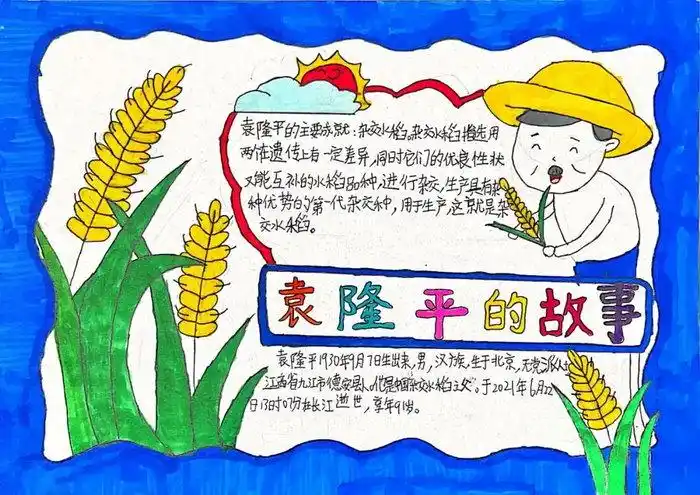 袁隆平的主要成就:杂交水稻。杂交水稻指选用
两 遗传上有一定差异,同时它们的优良性状
又能互补的水稻品种,进行杂交,生产具有杂
种优势的第一代杂交种,用于生产,这就是杂
交水稻。
袁隆平的故事
袁隆平1930年9月7日生出来,男,汉族,生于北京,无党派人
江西省九江市德安县人。他是中国"杂交水稻之父"。于2021年6月22
日13时07分在长江逝世,享年91岁。